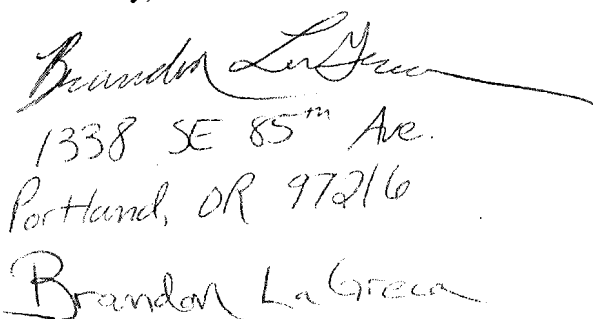 Brandon LaGreca
1338 SE 85th Ave.
Portland, OR 97216
Brandon LaGreca